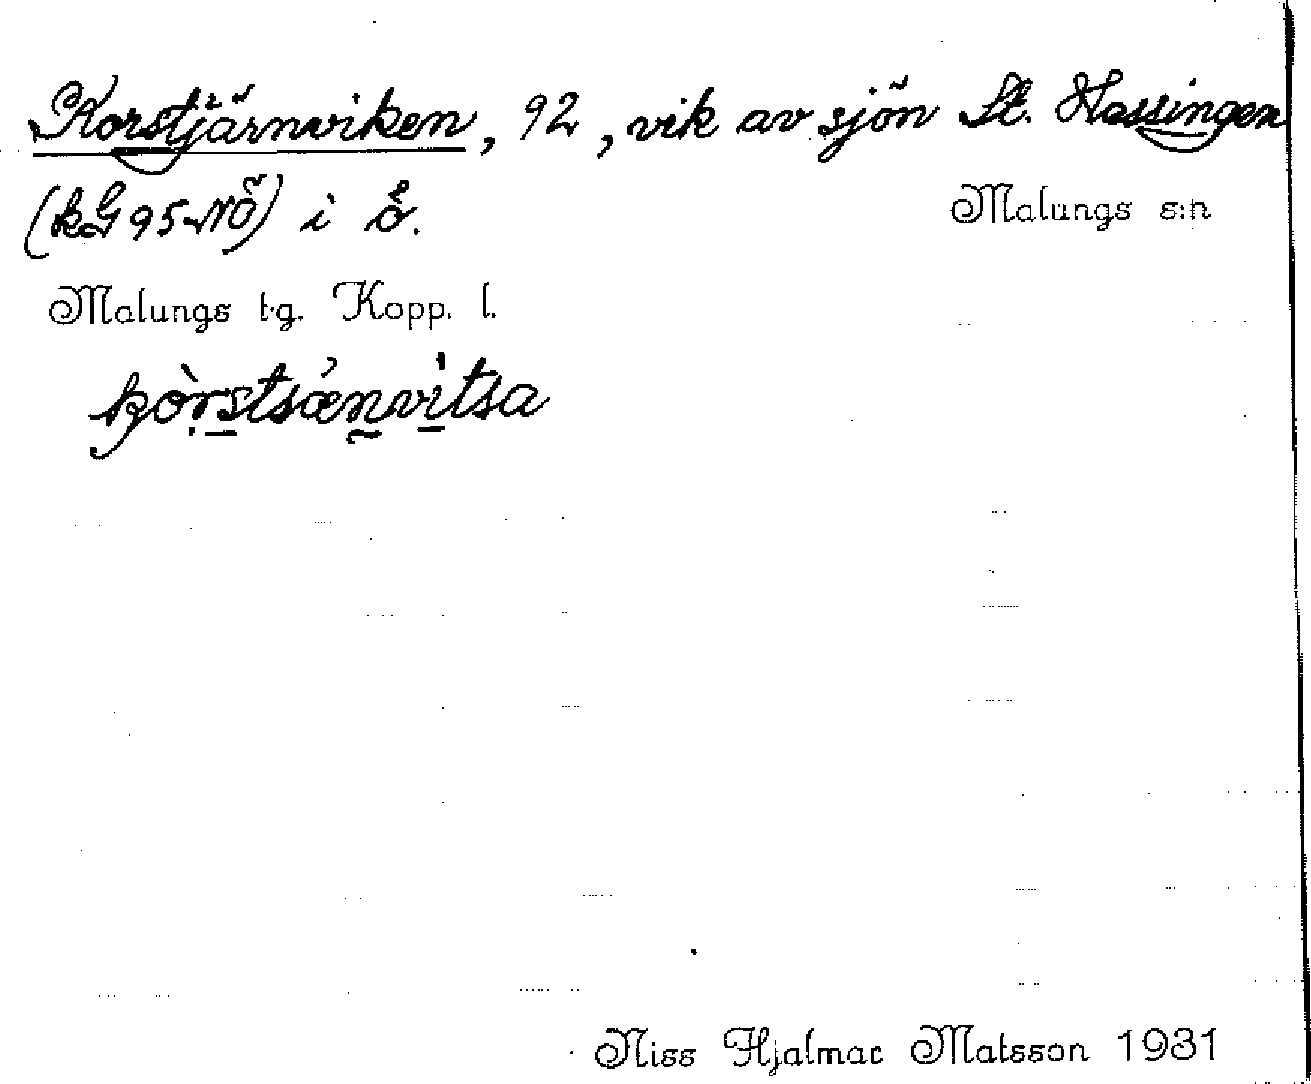 Korstjärnviken, 92, vik av sjön St. Hassingen
(kG 95 NÖ) i ö.
Malungs s:n
Malungs t.g. Kopp. l.
kòrstsǽnvìtsa
Niss Hjalmar Matsson 1931